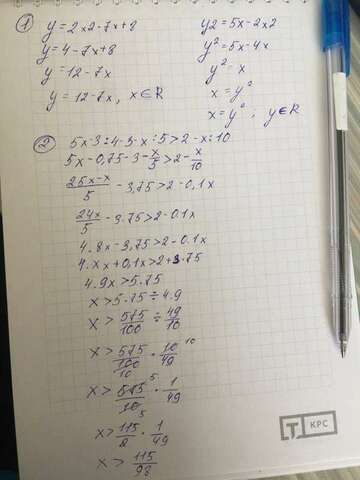 1 y=2x2-7x+8
y=4-7x+8
y=12-7x
y=12-7x, x∈R
y2=5x-2x2
y²=5x-4x
y²=x
x=y²
x=y²; y∈R
2 5x-3:4-3-x:5>2-x:10
5x-0,75-3-x/5>2-x/10
25x-x/5-3,75>2-0,1x
24x/5-3.75>2-0.1x
4.8x-3,75>2-0.1x
4.xx+0,1x>2+3.75
4.9x>5.75
x>5.75÷4.9
x>575/100÷49/10
x>575/100·10/49 10 10
x>575/10·1/49 5 5
x>115/2·1/49
x>115/98
T КРС